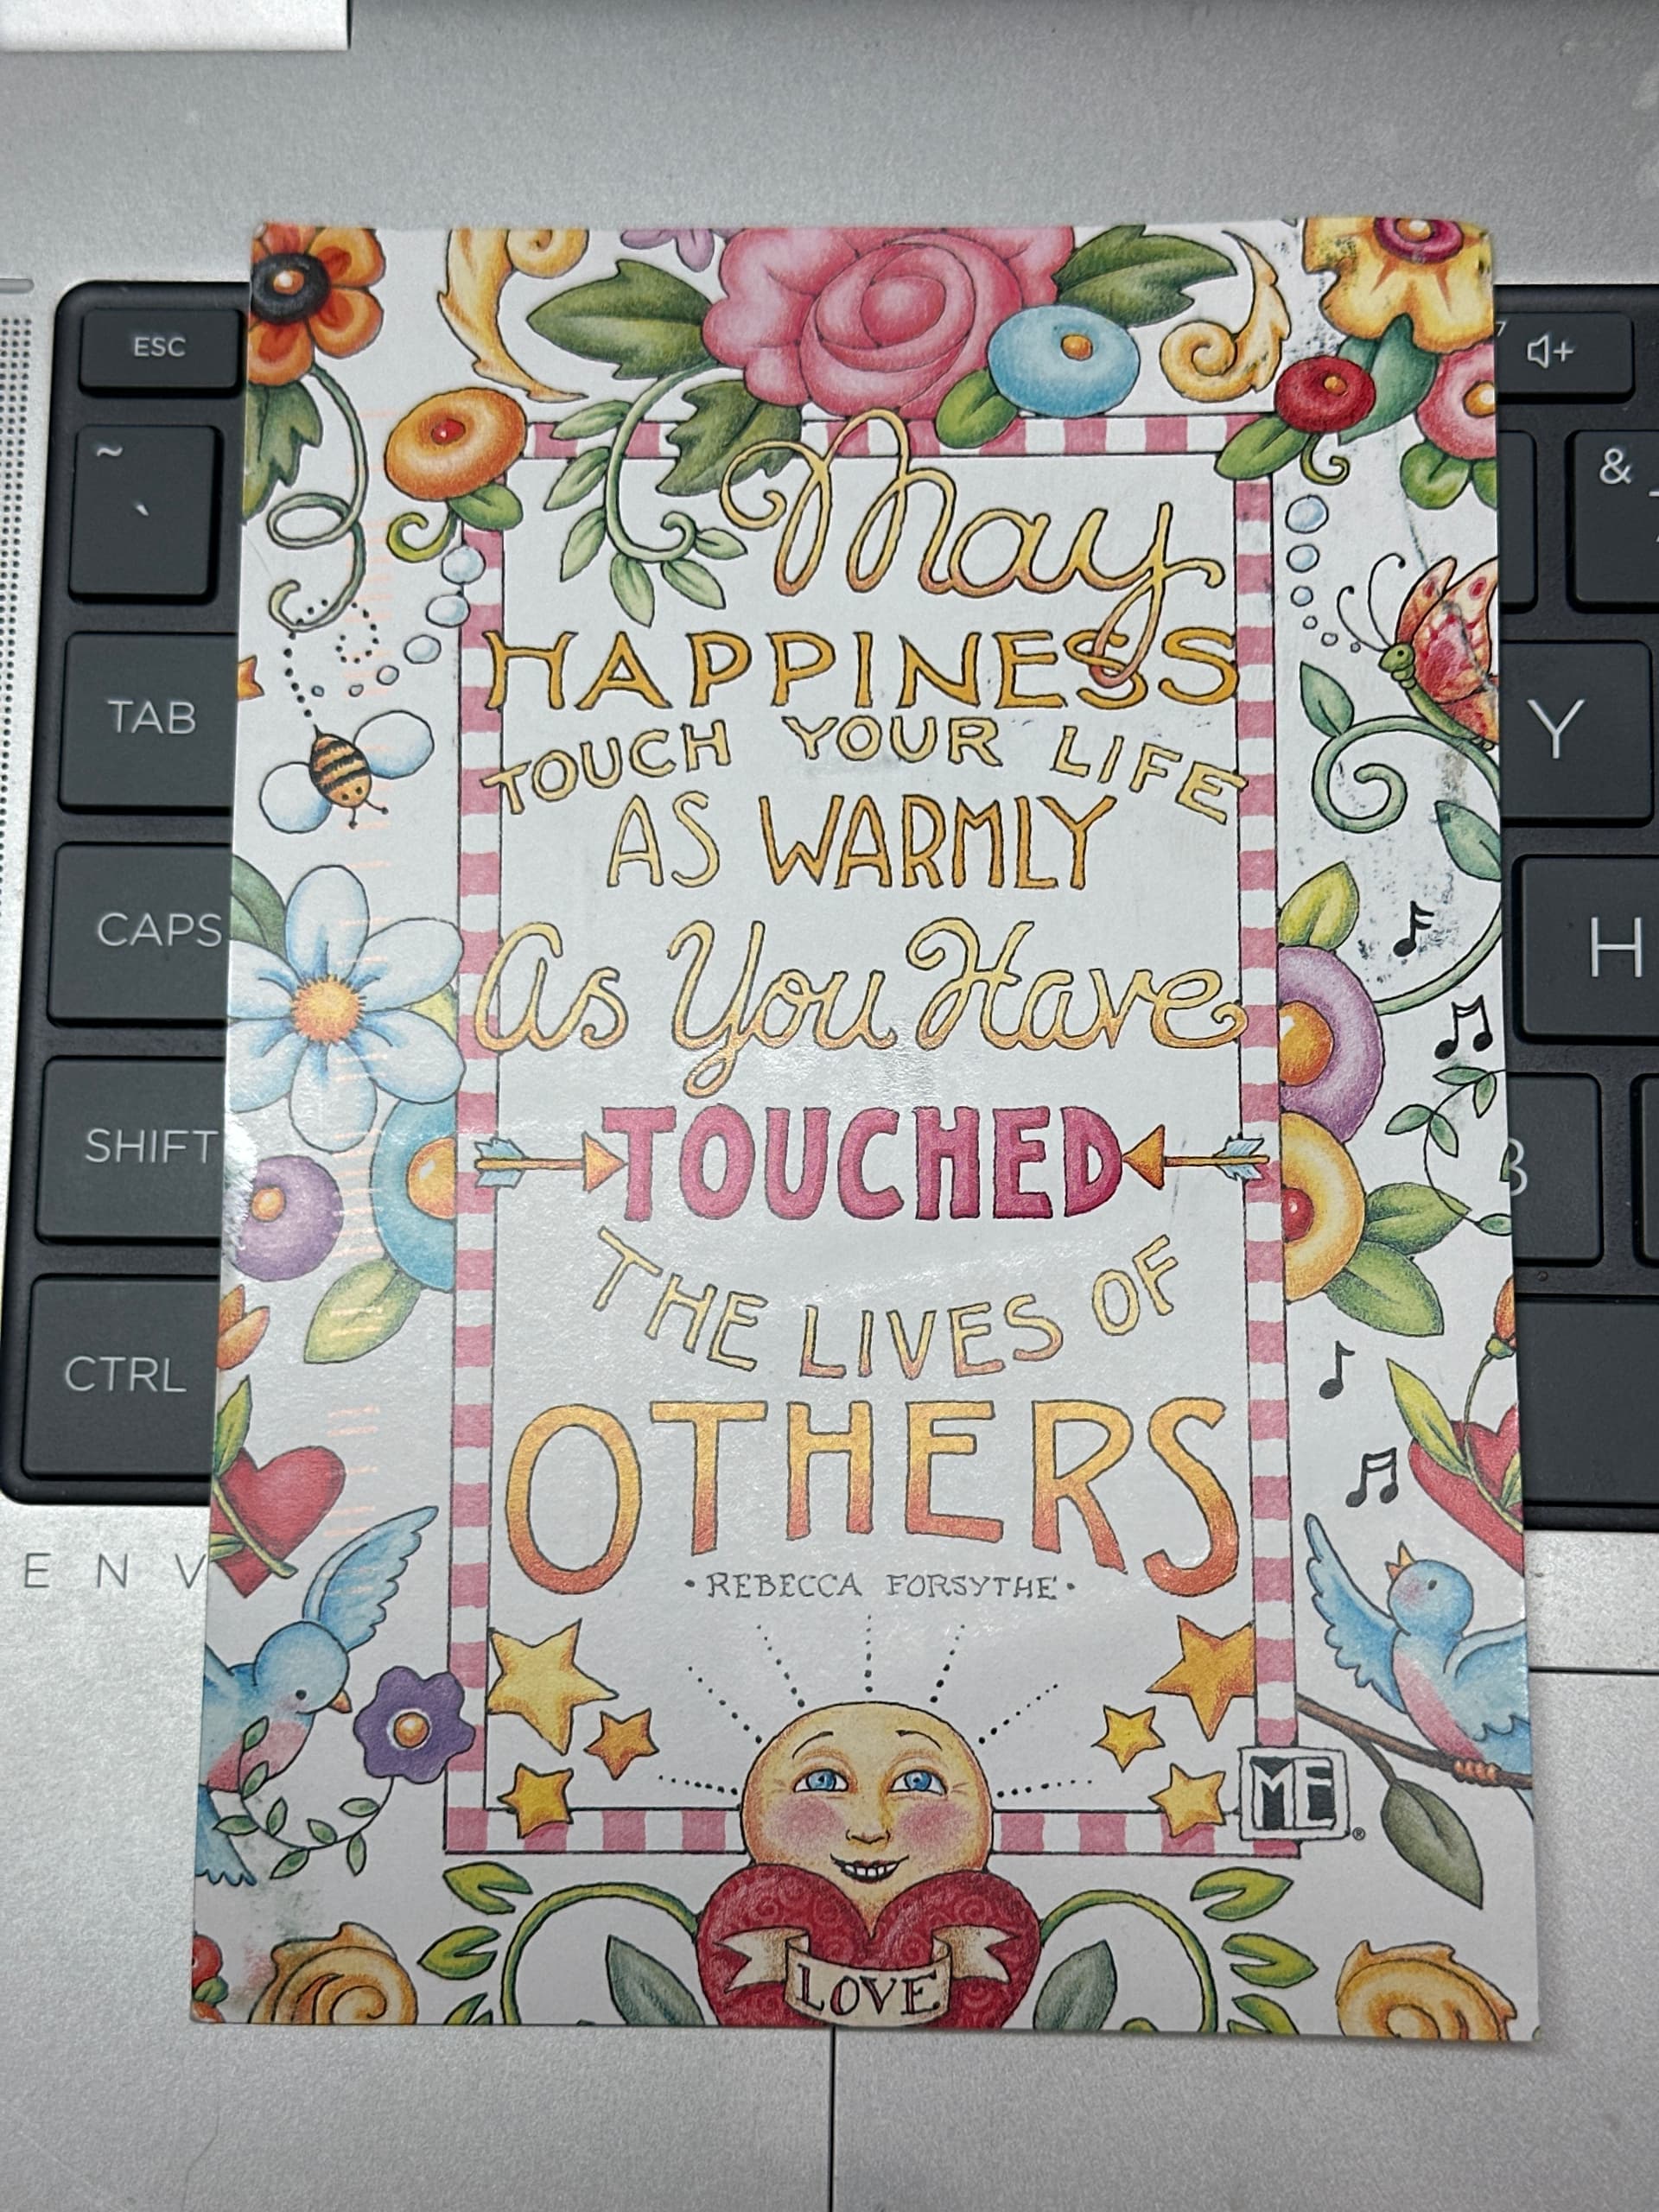 May
HAPPINESS
TOUCH YOUR LIFE
AS WARMLY
As You Have
TOUCHED
THE LIVES OF
OTHERS
• REBECCA FORSYTHE •
ME ®
LOVE
ESC
~
`
TAB
CAPS
SHIFT
CTRL
ENV
7
&
Y
H
B